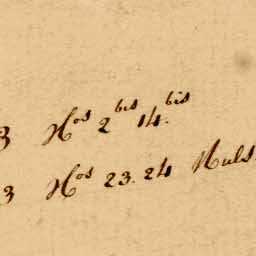 3 N.os 2bis 14.bis
3 N.os 23. 24 Nuls.